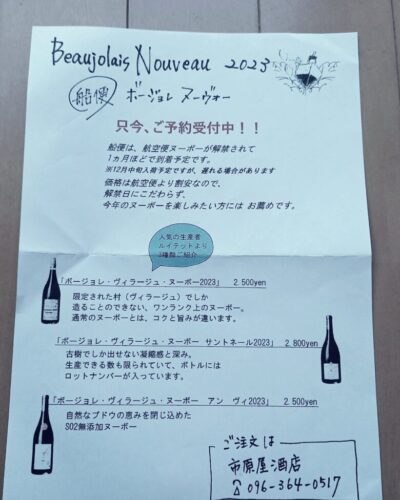 Beaujolais Nouveau 2023
船便 ボージョレ ヌーヴォー
只今、ご予約受付中！！
船便は、航空便ヌーボーが解禁されて
1ヵ月ほどで到着予定です。
※12月中旬入荷予定ですが、遅れる場合があります
価格は航空便より割安なので、
解禁日にこだわらず、
今年のヌーボーを楽しみたい方には お薦めです。
人気の生産者
ルイテットより
3種類ご紹介
「ボージョレ・ヴィラージュ・ヌーボー2023」 2.500yen
限定された村（ヴィラージュ）でしか
造ることのできない、ワンランク上のヌーボー。
通常のヌーボーとは、コクと旨みが違います。
「ボージョレ・ヴィラージュ・ヌーボー サントネール2023」 2.800yen
古樹でしか出せない凝縮感と深み。
生産できる数も限られていて、ボトルには
ロットナンバーが入っています。
「ボージョレ・ヴィラージュ・ヌーボー アン ヴィ2023」 2.500yen
自然なブドウの恵みを閉じ込めた
SO2無添加ヌーボー
ご注文は
市原屋酒店
☎ 096-364-0517